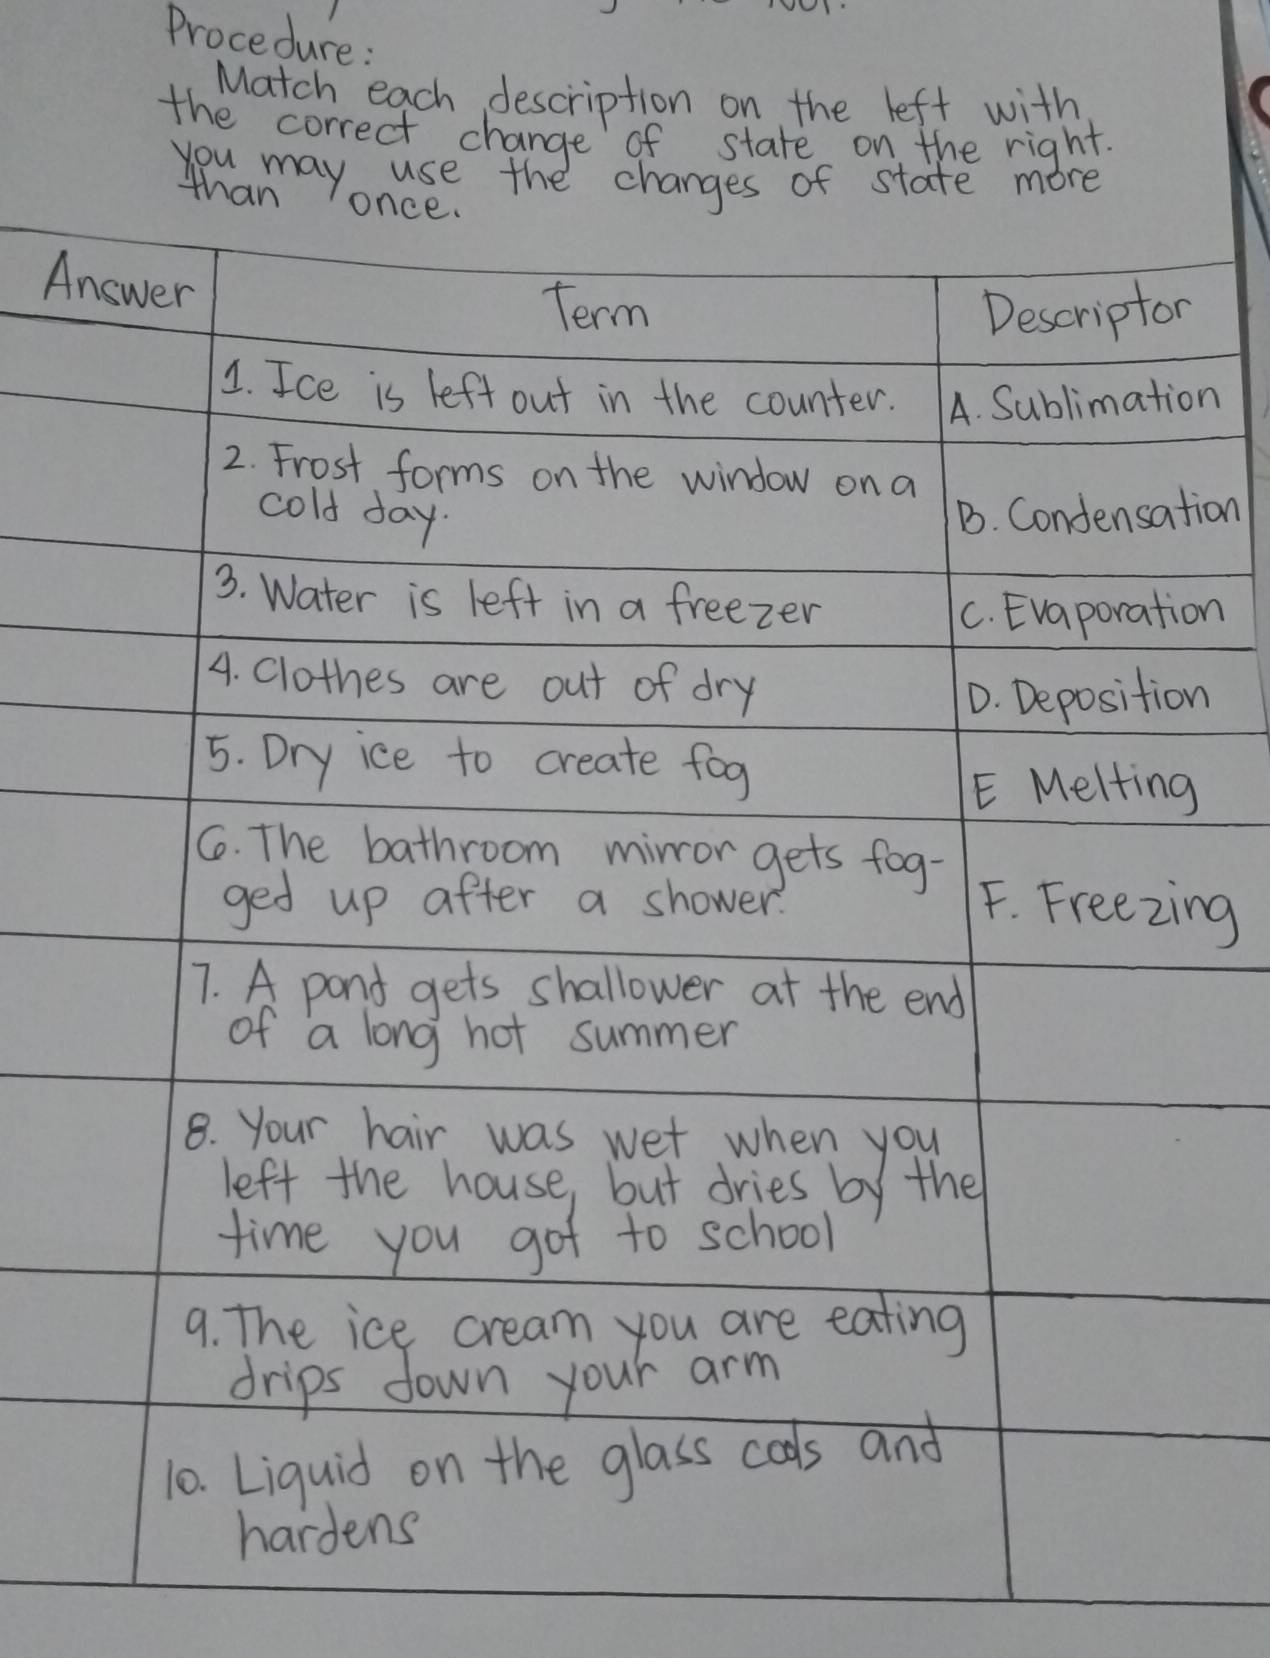 Procedure:
Match each description on the left with
the correct change of state on the right.
you may use the changes of state more
than once.
Answer Term Descriptor
1. Ice is left out in the counter. A. Sublimation
2. Frost forms on the window on a
cold day. B. Condensation
3. Water is left in a freezer C. Evaporation
4. Clothes are out of dry D. Deposition
5. Dry ice to create fog E Melting
6. The bathroom mirror gets fog-
ged up after a shower. F. Freezing
7. A pond gets shallower at the end
of a long hot summer
8. Your hair was wet when you
left the house, but dries by the
time you got to school
9. The ice cream you are eating
drips down your arm
10. Liquid on the glass cools and
hardens